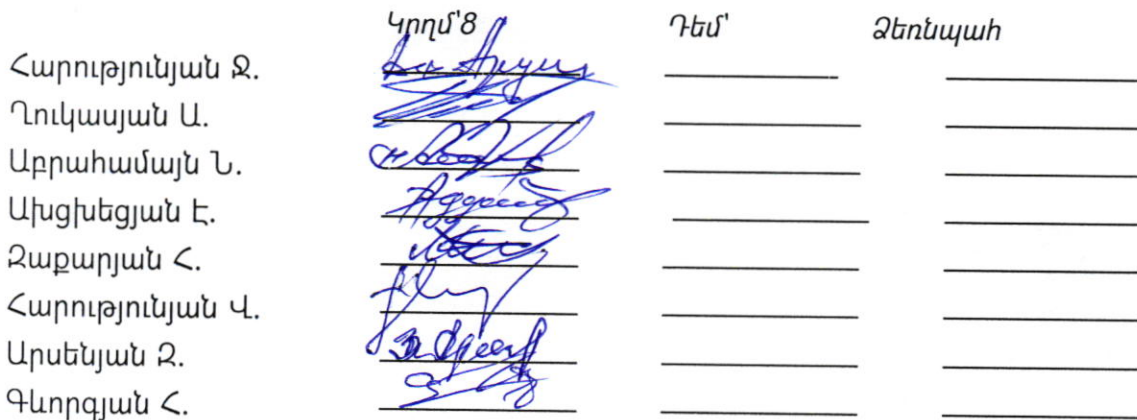 Կողմ՝8 Դեմ՝ Ձեռնպահ
Հարությունյան Ջ.
Ղուկասյան Ա.
Աբրահամայն Ն.
Ախցխեցյան Է.
Զաքարյան Հ.
Հարությունյան Վ.
Արսենյան Զ.
Գևորգյան Հ.